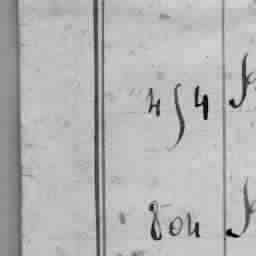 454
804